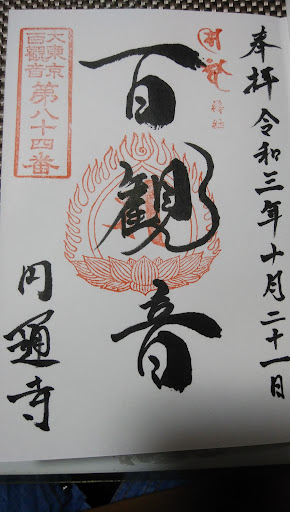 奉拝 令和三年十月二十一日
百観音
大東京
百觀音
第八十四番
円通寺